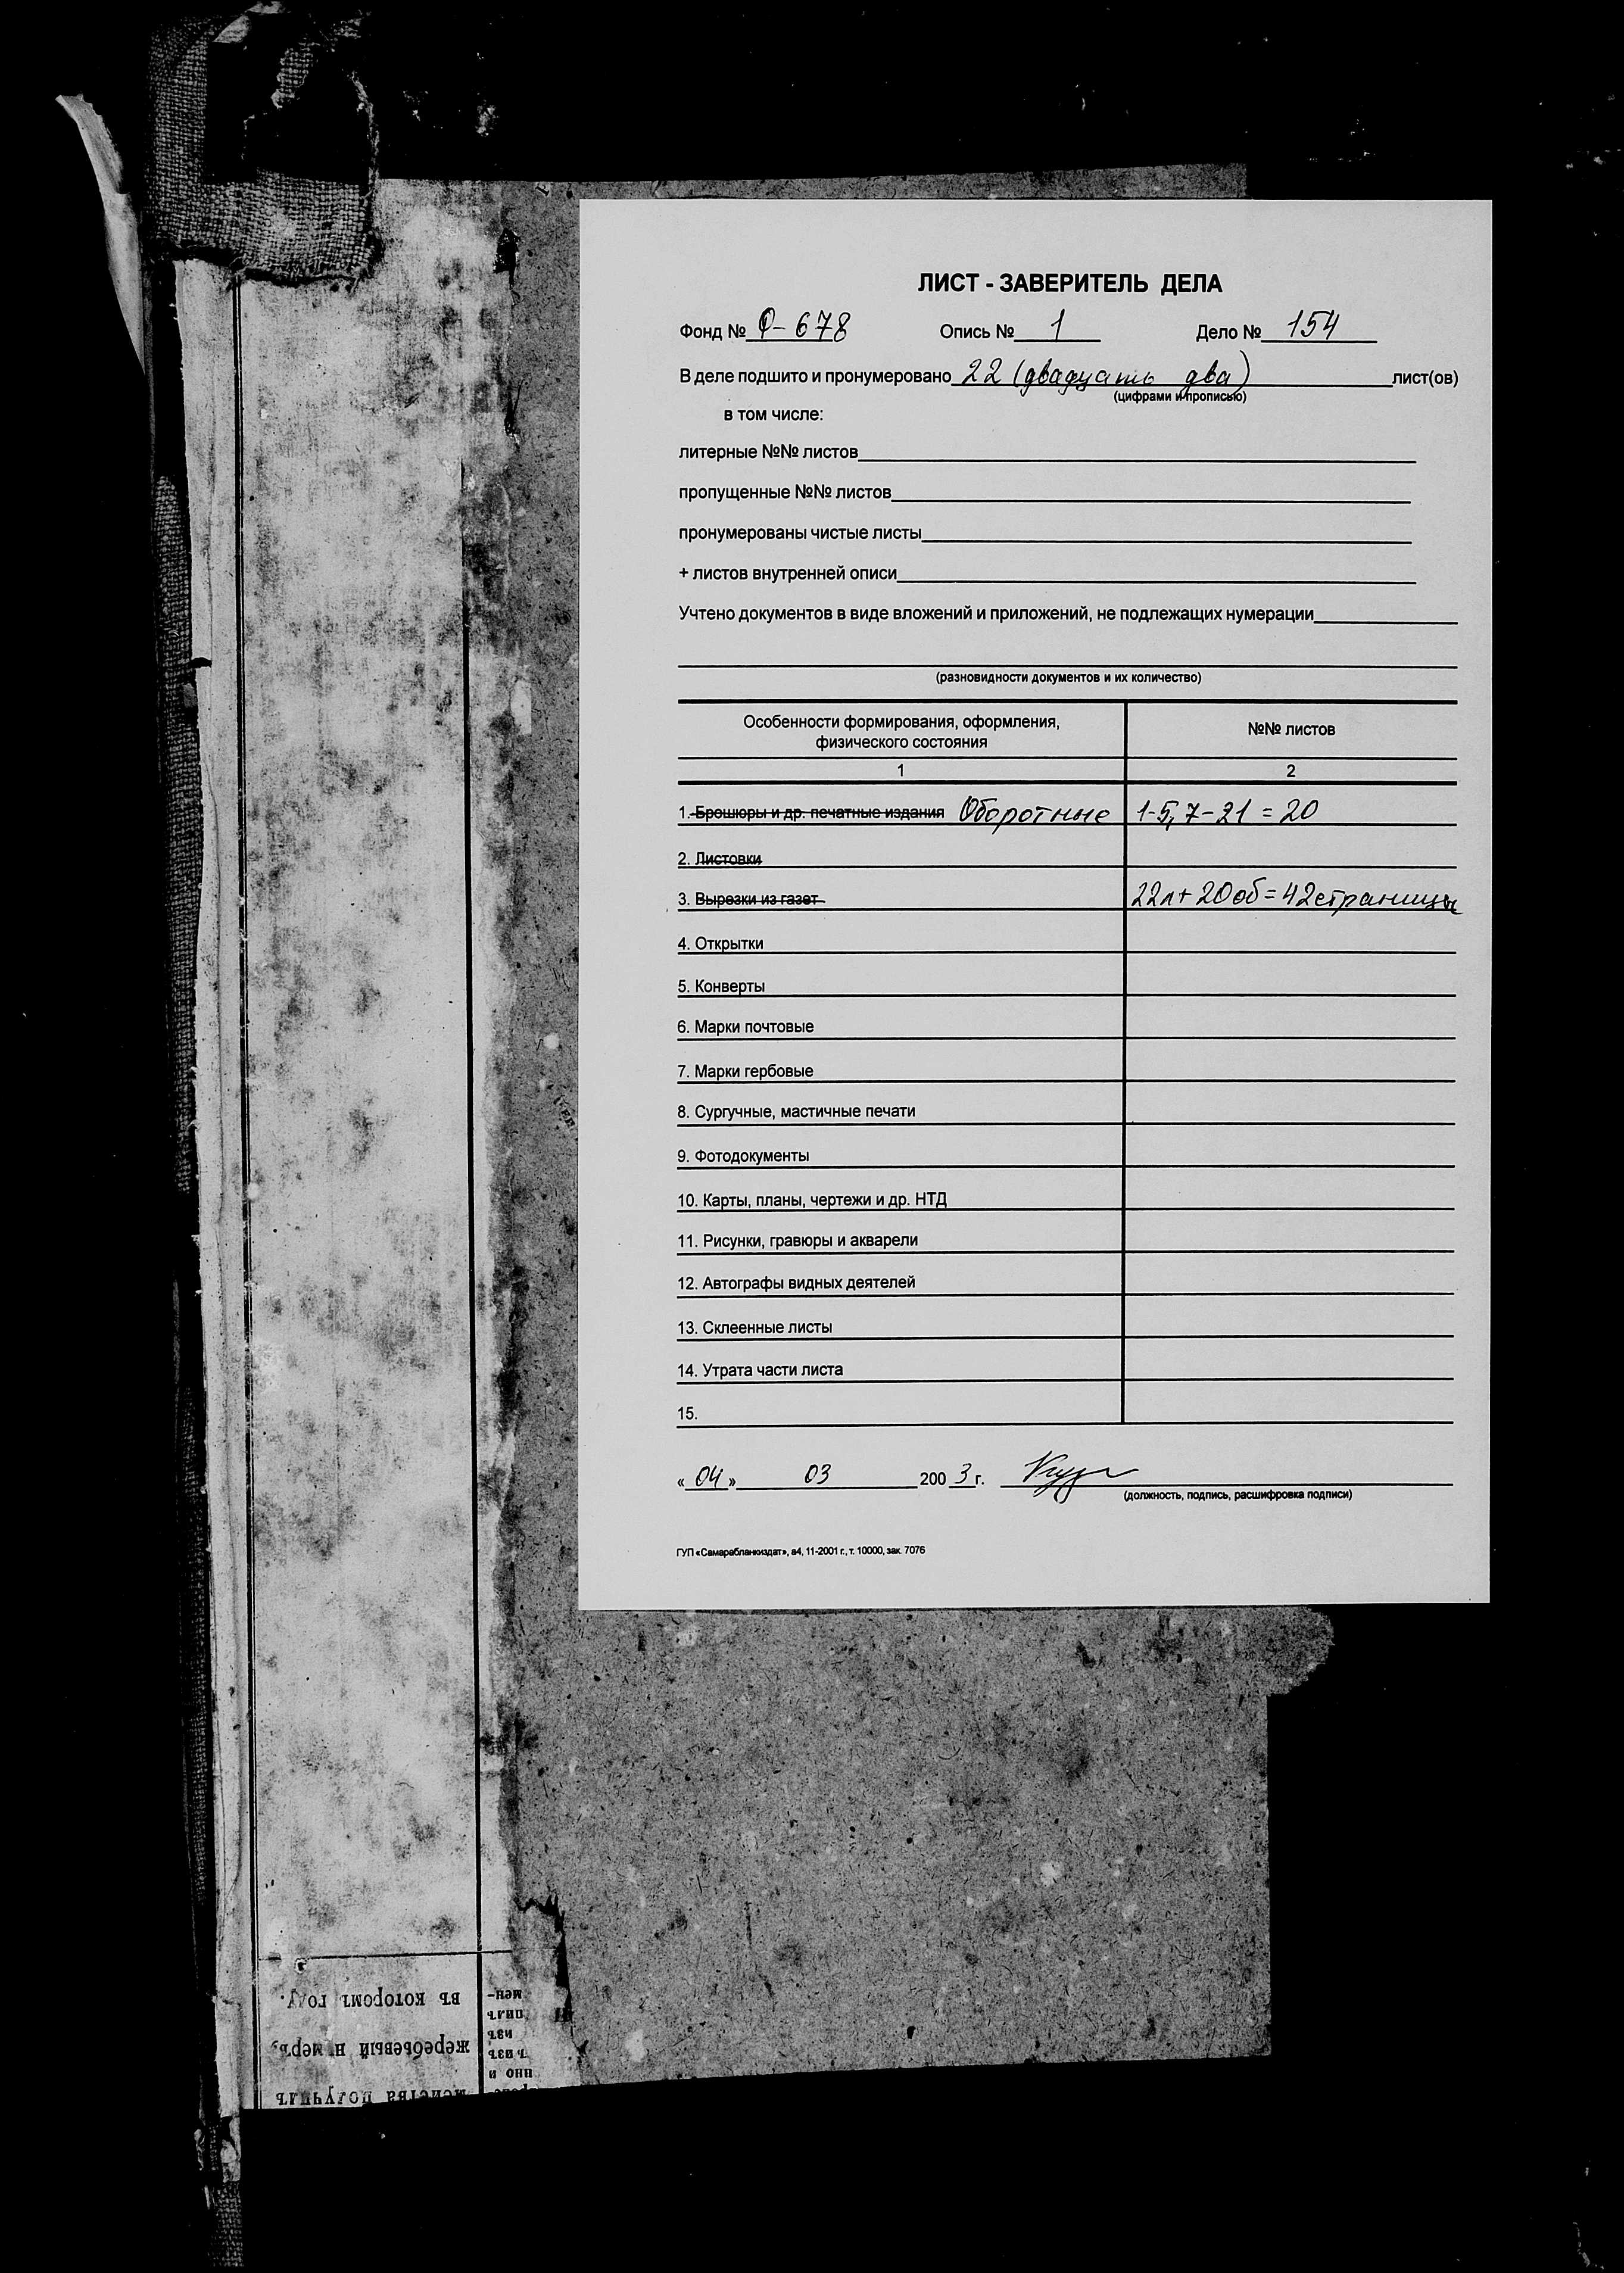 ЛИСТ - ЗАВЕРИТЕЛЬ ДЕЛА
Фонд № Ф-678 Опись № 1 Дело № 154
В деле подшито и пронумеровано 22 (двадцать два) лист(ов)
(цифрами и прописью)
в том числе:
литерные №№ листов
пропущенные №№ листов
пронумерованы чистые листы
+ листов внутренней описи
Учтено документов в виде вложений и приложений, не подлежащих нумерации
(разновидности документов и их количество)
Особенности формирования, оформления, №№ листов
физического состояния
1 2
1. Брошюры и др. печатные издания Оборотные 1-5, 7-21 = 20
2. Листовки
3. Вырезки из газет 22л + 20об = 42страницы
4. Открытки
5. Конверты
6. Марки почтовые
7. Марки гербовые
8. Сургучные, мастичные печати
9. Фотодокументы
10. Карты, планы, чертежи и др. НТД
11. Рисунки, гравюры и акварели
12. Автографы видных деятелей
13. Склеенные листы
14. Утрата части листа
15.
« 04 » 03 200 3 г.
(должность, подпись, расшифровка подписи)
ГУП «Самарабланкиздат», а4, 11-2001 г., т. 10000, зак. 7076
получилъ
жеребьевый
въ которомъ году.